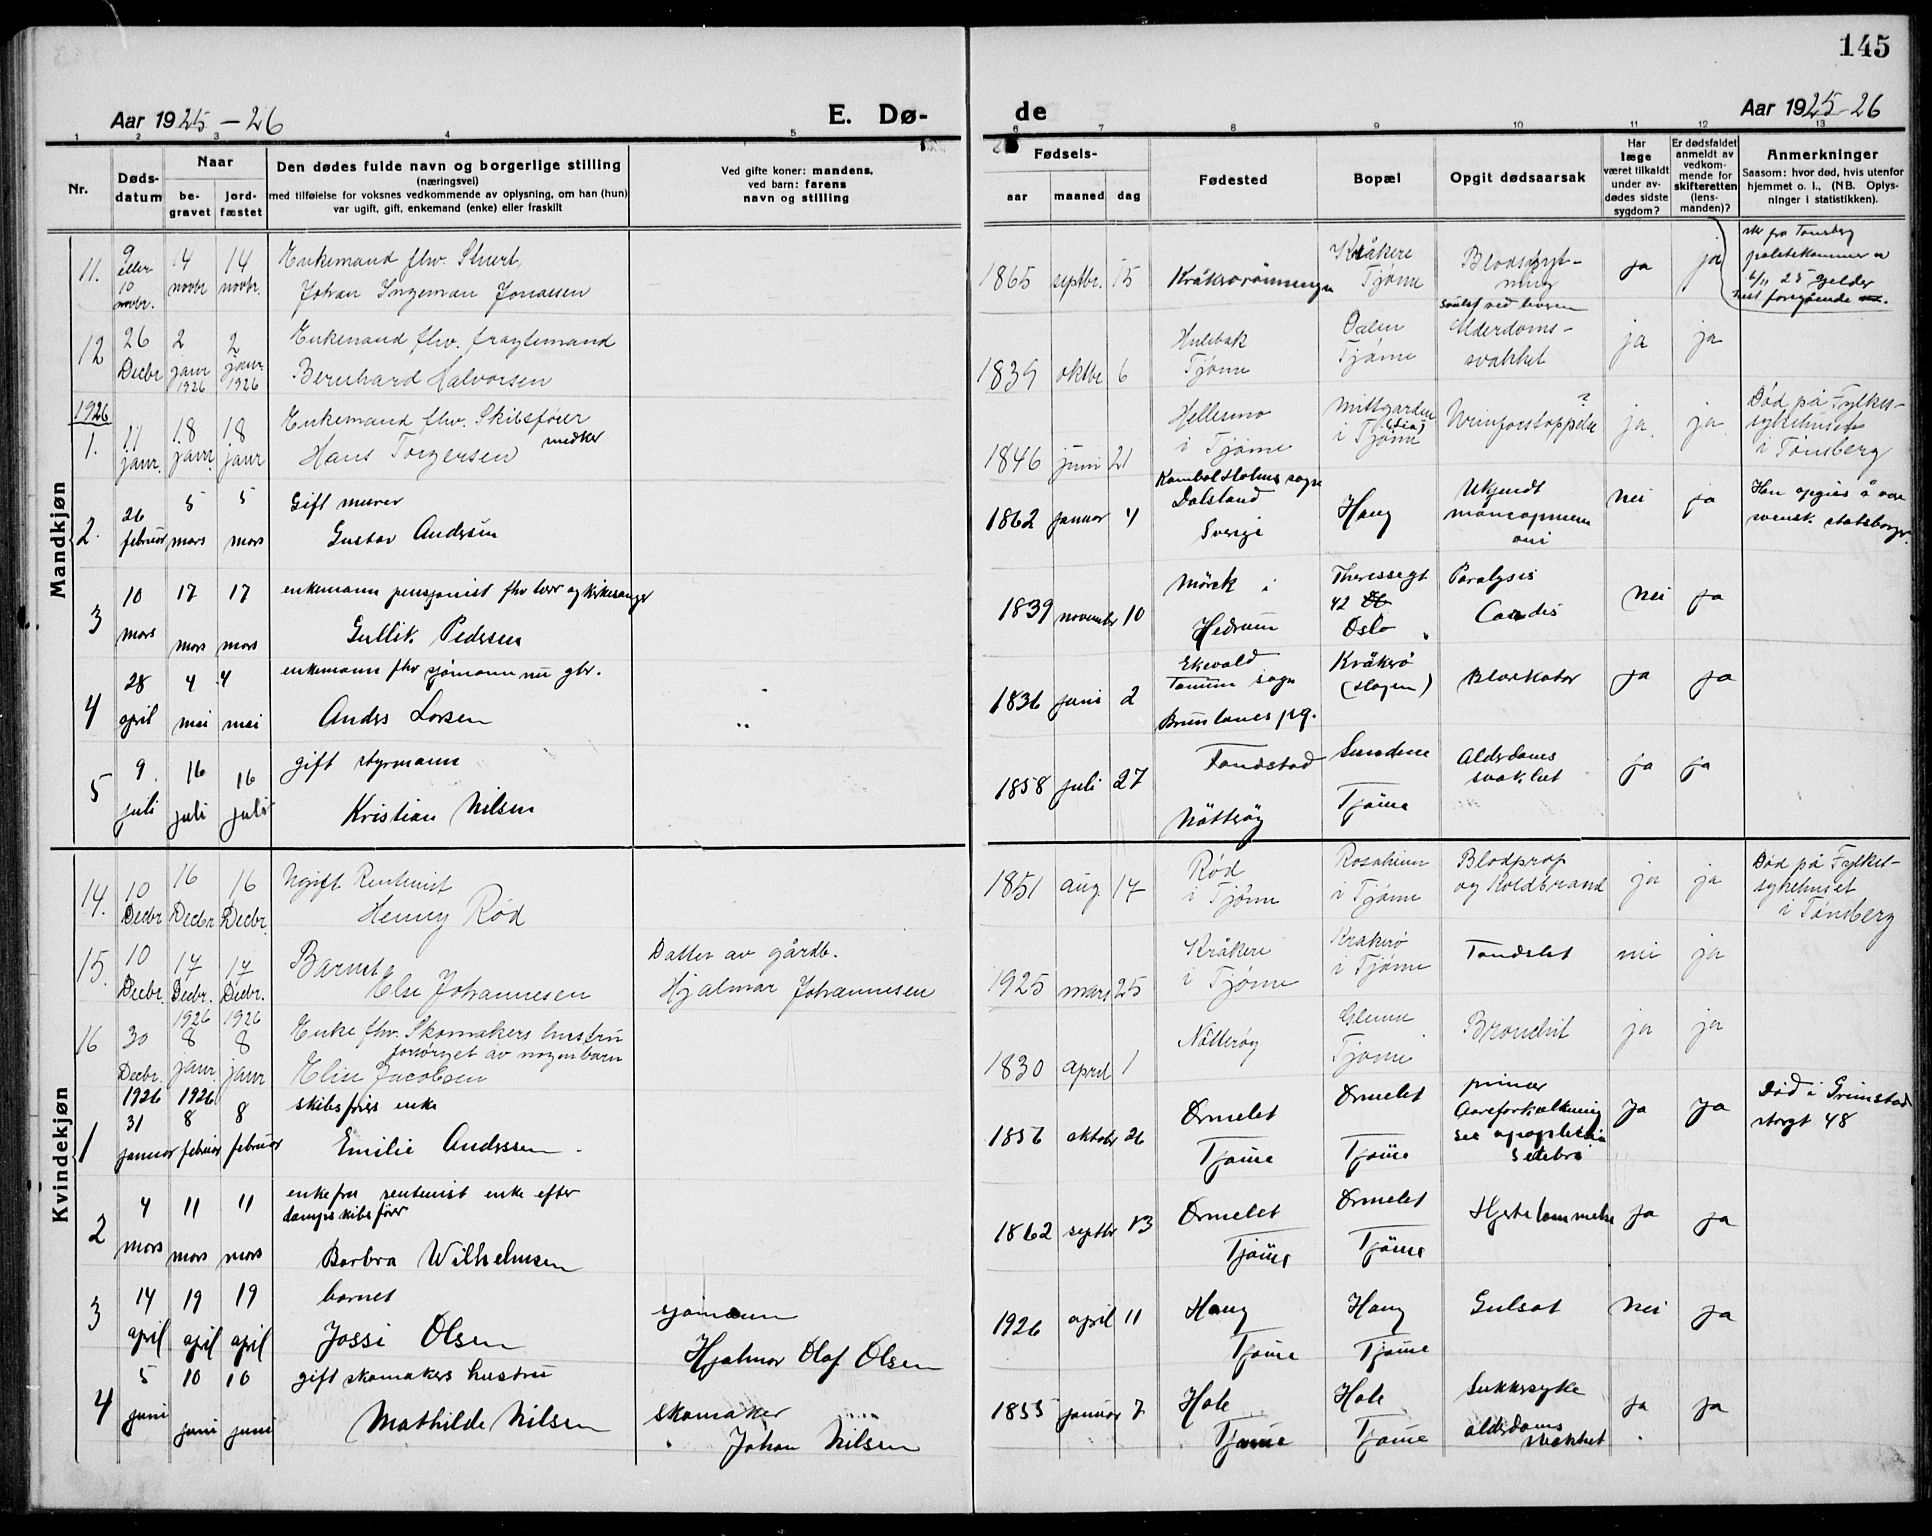 145
Aar 1925-26
E. Dø-
de
Aar 1925-26
1 2 3 4 5 6 7 8 9 10 11 12 13
Nr.
Døds-
datum
Naar
be-
gravet
jord-
fæstet
Den dødes fulde navn og borgerlige stilling
(næringsvei)
med tilføielse for voksnes vedkommende av oplysning, om han (hun)
var ugift, gift, enkemand (enke) eller fraskilt
Ved gifte koner: mandens,
ved barn: farens
navn og stilling
Fødsels-
aar maaned dag
Fødested
Bopæl
Opgit dødsaarsak
Har
læge
været tilkaldt
under av-
dødes sidste
sygdom?
Er dødsfaldet
anmeldt av
vedkom-
mende for
skifteretten
(lens-
manden)?
Anmerkninger
Saasom: hvor død, hvis utenfor
hjemmet o. l., (NB. Oplys-
ninger i statistikken).
Mandkjøn
11. 9 eller 10 novbr. 14 novbr 14 novbr.
Enkemand fhv.
Johan Ingeman Jonassen
1865 septbr. 15
Kråkere
Tjøme
ja ja
skr fra Tønsberg
politikammer
6/11 25 gjelder
foregående
12 26 Decbr 2 janr 1926 2 janr 1926
Enkemand fhv. fragtemand
Bernhard Halvorsen
1839 oktbr 6
Hulebak
Tjøme
Tjøme
Alderdoms-
svakhet
ja ja
1926
1. 11 janr. 18 janr. 18 janr
Enkemand fhv. Skibsfører
Hans Torgersen
1846 juni 21
i Tjøme
i Tjøme
Urinforstoppelse ?
ja. ja
Død på Fylkes-
sykehuset
i Tønsberg
2. 26 februar 5 mars 5 mars
Gift murer
Gustav Andersen
1862 januar 4
Dalsland
Sverige
Haug
Ukjendt
nei ja
Han opgies å være
svensk statsborger.
3 10 mars 17 mars 17 mars
enkemann pensjonist fhv lærer og kirkesanger
Gullik Pedersen
1839 november 10
Mørck i
Hedrum
Theresesgt
42
Oslo
Paralysis
Cordis
Nei ja
4 28 april 4 mei 4 mei
enkemann fhv sjømann nu gbr.
Anders Larsen
1836 juni 2
Tanum sogn
Brunlanes pg.
Kråkerø
(Hagen)
ja ja
5 9. juli 16 juli 16 juli
gift styrmann
Kristian Nilsen
1858 juli 27
Nøtterøy
Sundene
Tjøme
Alderdoms
svakhet
ja ja
Kvindekjøn
14. 10 Decbr 16 Decbr 16 Decbr.
Ugift Rentenist
Henny Rød
1851 aug. 17
Rød
i Tjøme
Rosaheim
i Tjøme
Blodprop
og Koldbrand
ja ja
Død på Fylkes-
sykehuset
i Tønsberg
15. 10 Decbr. 17 Decbr. 17 Decbr.
Barnet
Else Johannesen
Datter av gårdb.
Hjalmar Johannesen
1925 mars 25
Kråkere
i Tjøme
Kråkerø
i Tjøme
Tandslet
nei ja
16 30 Decbr. 1926 8 janr. 1926 8 janr
Enke fhv. Skomakers hustru
forsørget av egen barn
Elise Jacobsen
1830 april 1
Nøtterøy
Glenne
Tjøme
Bronchit
ja ja
1 1926 31 januar 1926 8 februar 8 februar
skibsførers enke
Emilie Anderssen
1856 oktober 26
Ormelet
Tjøme
Ormelet
Tjøme
primær
Aareforkalkning
sec apoplexia
cerebri
ja ja
Død i Grimstad
storgt 48
2 4 mars 11 mars 11 mars
enkefru rentenist enke efter
dampskibsfører
Barbra Wilhelmsen
1862 septbr 13
Ormelet
Tjøme
Ormelet
Tjøme
Hjertelammelse
ja ja
3 14 april 19 april 19 april
barnet
Jossi Olsen
sjømann
Hjalmar Olaf Olsen
1926 april 11
Haug
Tjøme
Haug
Tjøme
Gulsot
Nei ja
4 5 juni 10 juni 10 juni
gift skomakers hustru
Mathilde Nilsen
skomaker
Johan Nilsen
1855 januar 7
Hole
Tjøme
Hole
Tjøme
Sukkersyke
alderdoms
svakhet
ja ja